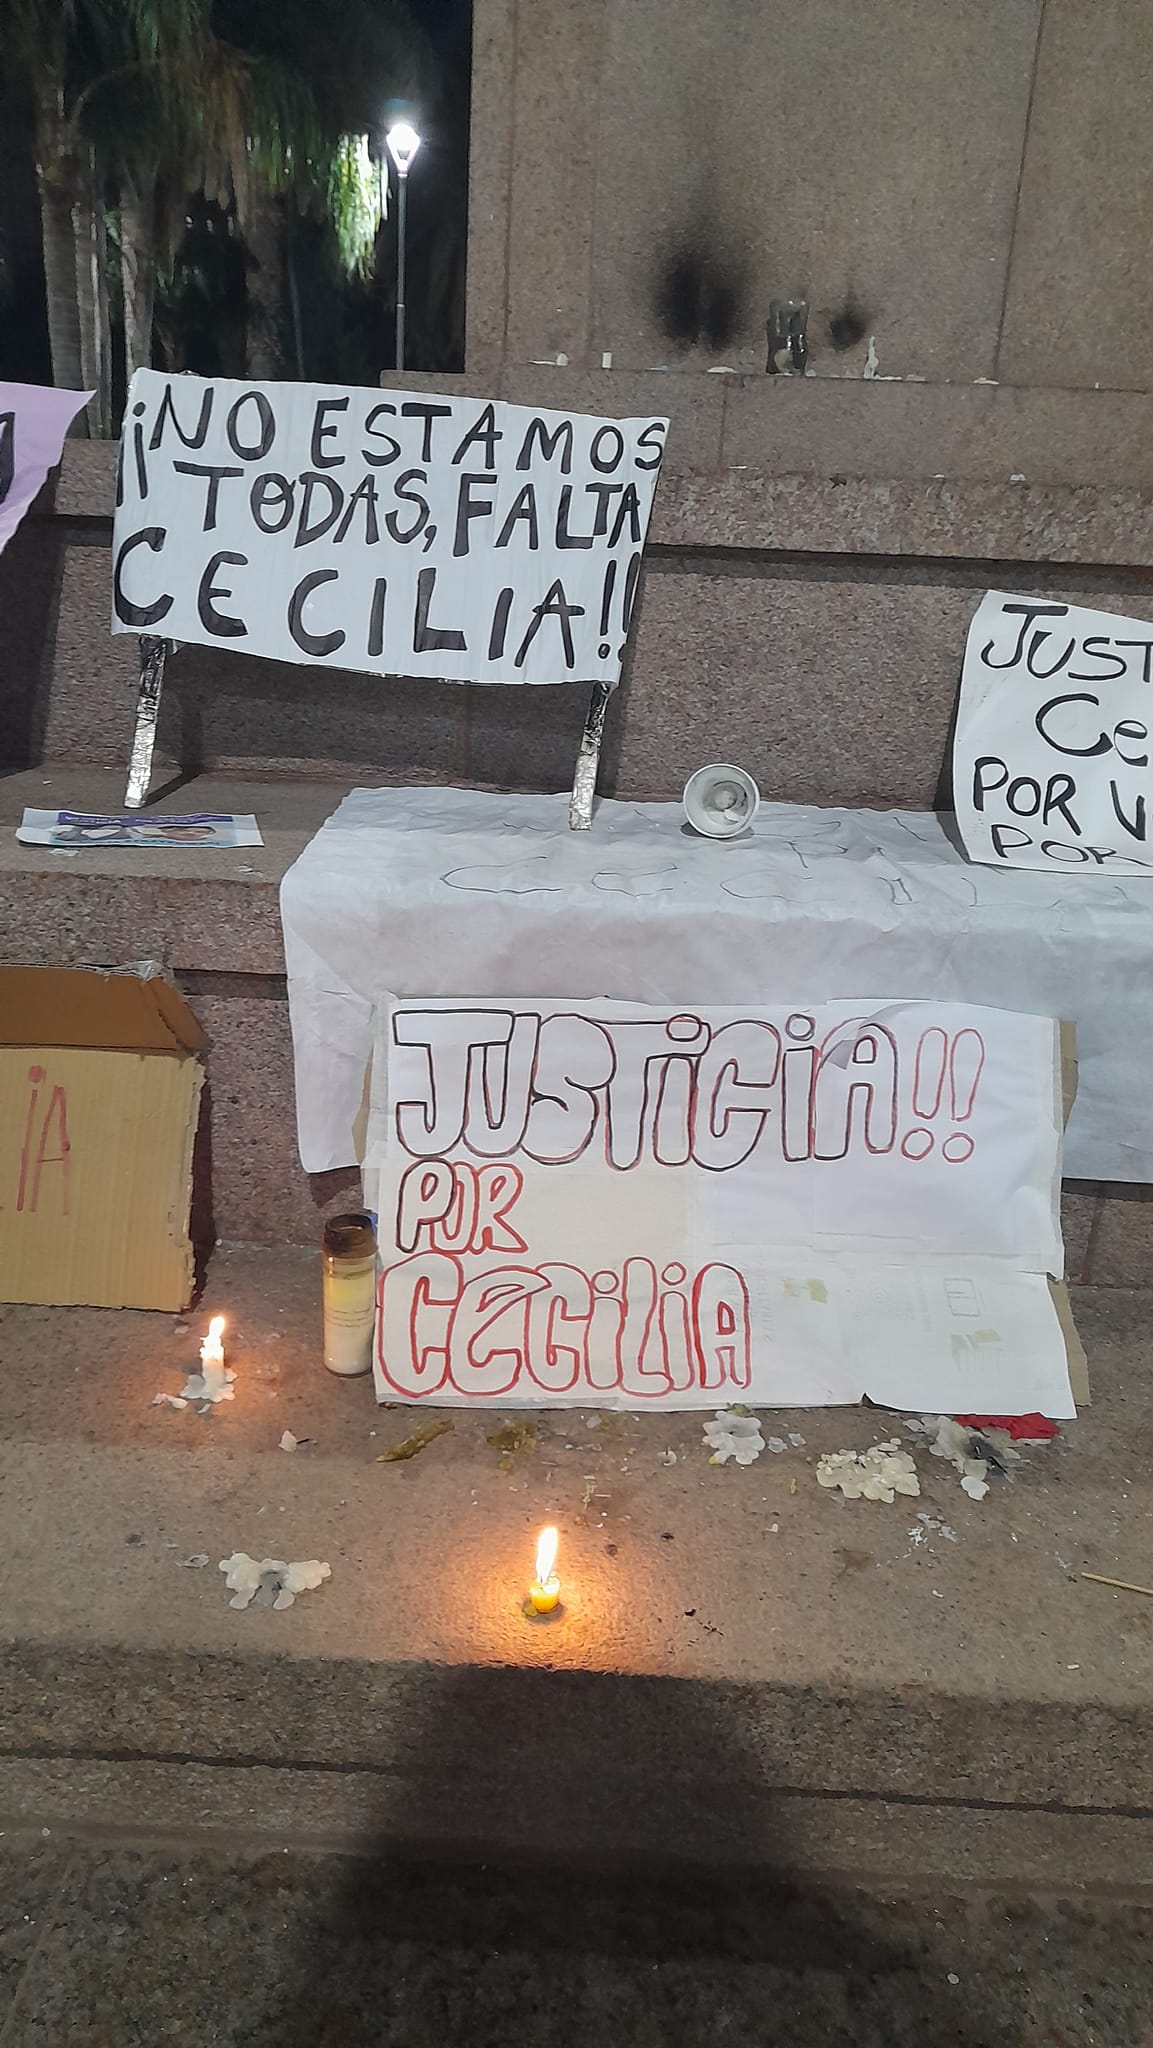 ¡¡NO ESTAMOS
TODAS, FALTA
CECILIA!!
JUST
Ce
POR V
POR
JUSTICIA!!
POR
CECILIA
IA